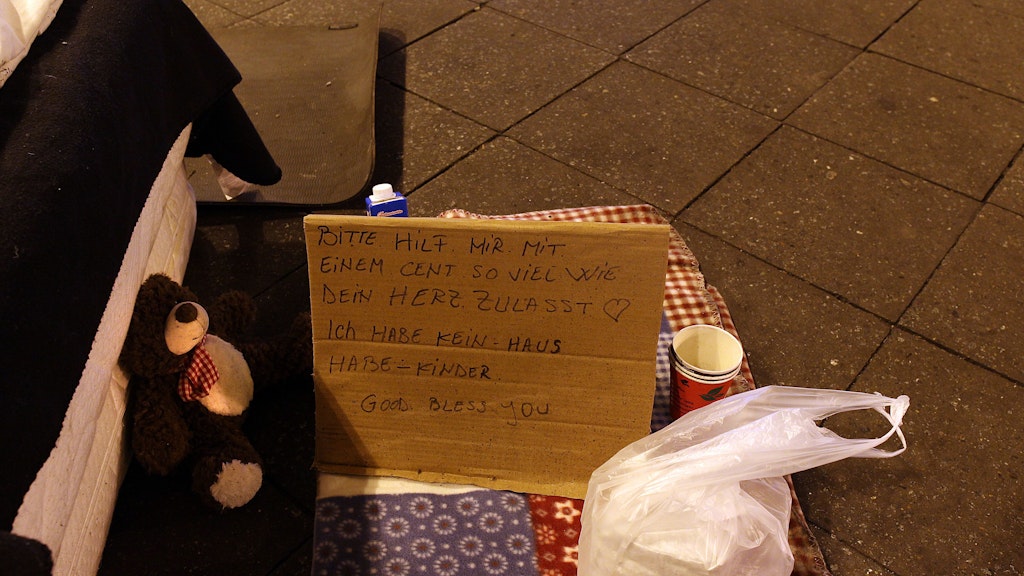 BITTE HILF MIR MIT
EINEM CENT SO VIEL WIE
DEIN HERZ ZULASST ♡
Ich HABE KEIN-HAUS
HABE-KINDER
GOOD BLESS YOU